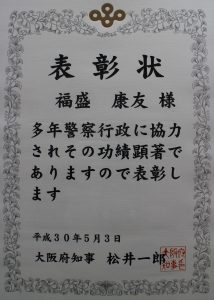 表彰状
福盛 康友 様
多年警察行政に協力
されその功績顕著で
ありますので表彰し
ます
平成30年5月3日
大阪府知事 松井一郎